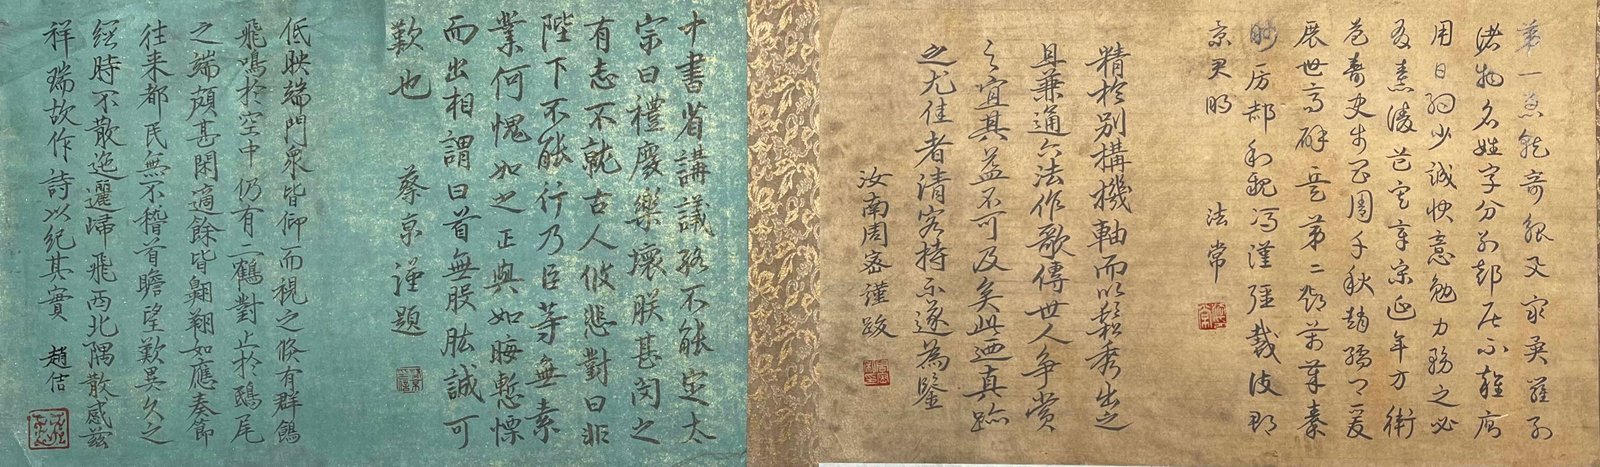 第一急就奇觚與眾異羅列
諸物名姓字分別部居不雜廁
用日約少誠快意勉力務之必
有憙
章宋延年方衛
益壽史步昌周千秋趙孺卿爰
展世高辟兵第二鄧萬歲秦
妙房郝利親馮漢彊戴護郡
京君明 法常
精於別構機軸而以鬆秀出之
且兼通六法作歌傳世人爭賞
之宜其益不可及矣此迺真跡
之尤佳者清客持示遂為鑒
汝南周密謹跋
中書省講議路不能定太
宗曰禮廢樂壞朕甚閔之
有志不就古人攸悲對曰非
陛下不能行乃臣等無素
業何愧如之正與如晦慙慄
而出相謂曰首無股肱誠可
歎也 蔡京謹題
低映端門衆皆仰而視之倏有群鶴
飛鳴於空中仍有二鶴對止於鴟尾
之端頗甚閑適餘皆翱翔如應奏節
往来都民無不稽首瞻望歎異久之
經時不散迤邐歸飛西北隅散感茲
祥瑞故作詩以紀其實 趙佶